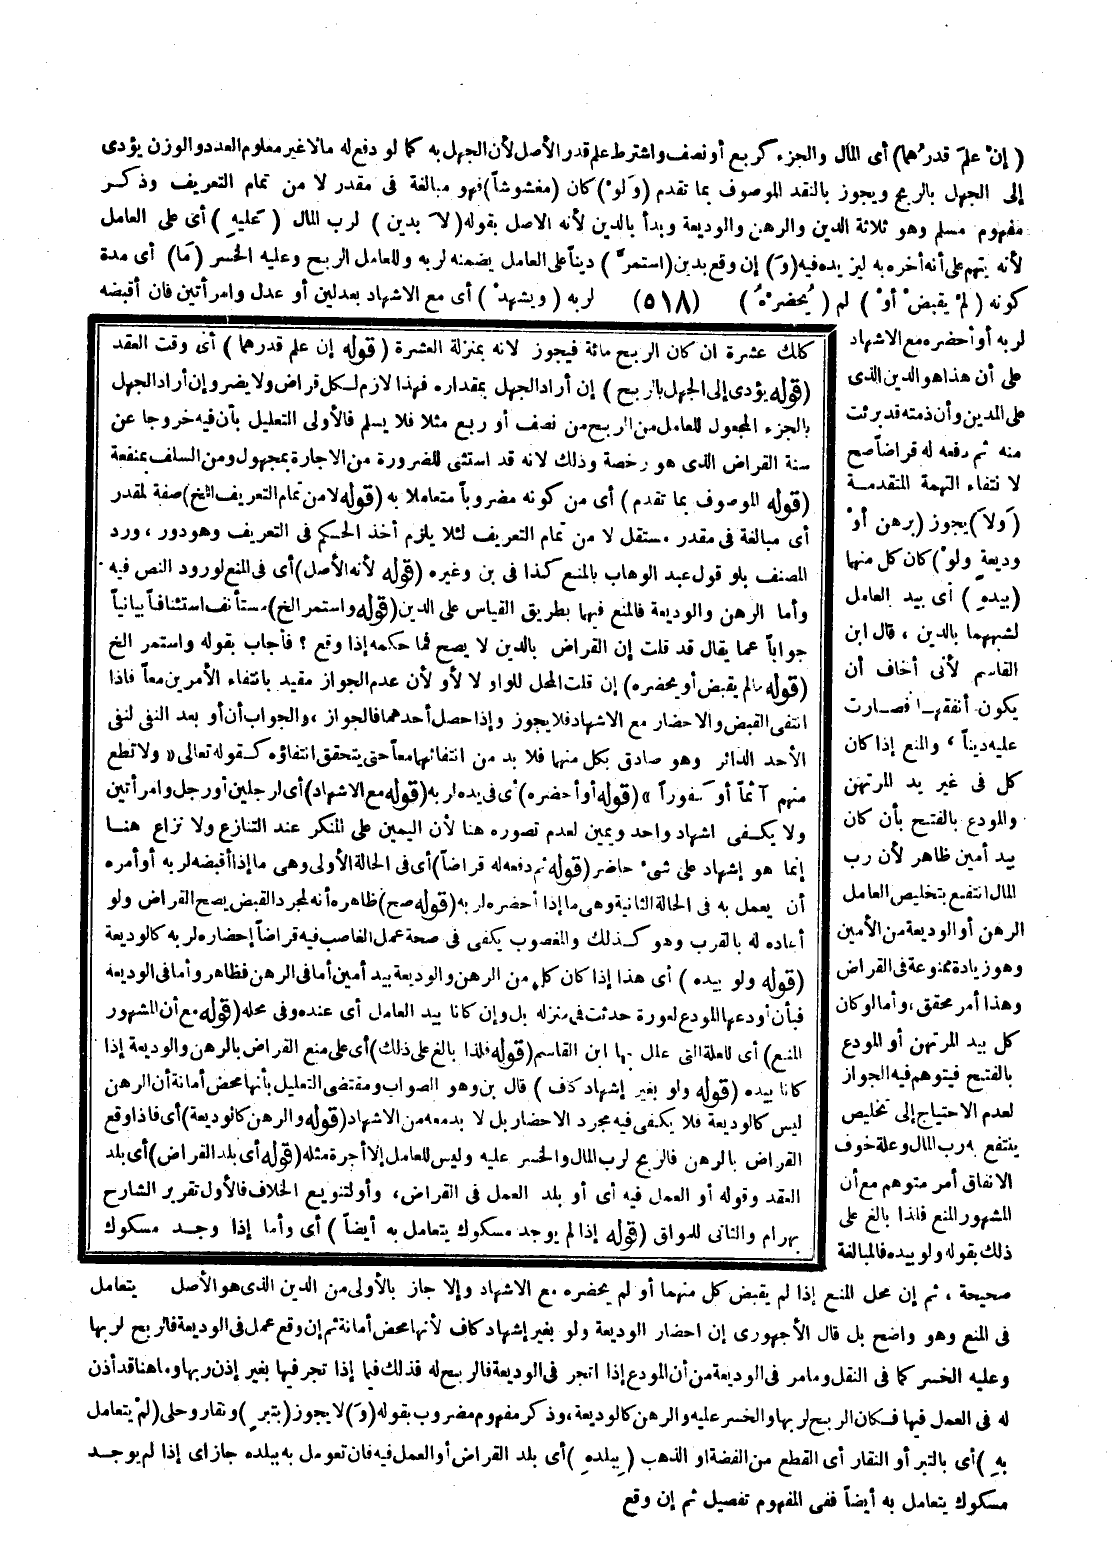 ( إنْ علمَ قدرُهما) أى المال والجزء كربع أو نصف واشترط علم قدر الأصل لأن الجهل به كما لو دفع له مالا غير معلوم العدد والوزن يؤدى
إلى الجهل بالربح ويجوز بالنقد الموصوف بما تقدم (وَلوْ) كان (مغشوشاً) فهو مبالغة فى مقدر لا من تمام التعريف وذكر
مفهوم مسلم وهو ثلاثة الدين والرهن والوديعة وبدأ بالدين لأنه الاصل بقوله (لاَ بدين ) لرب المال ( عليهِ ) أى على العامل
لأنه يتهم على أنه أخره به ليزيده فيه (وَ) إن وقع بدين (استمرَّ ) ديناً على العامل يضمنه لربه وللعامل الربح وعليه الخسر (مَا) أى مدة
كونه ( لمْ يقبضْ أوْ ) لم ( يُحضرْهُ ) (٥١٨) لربه ( ويشهدْ ) أى مع الاشهاد بعدلين أو عدل وامرأتين فان أقبضه
لربه أو أحضره مع الاشهاد
على أن هذا هو الدين الذى
على المدين وأن ذمته قد برئت
منه ثم دفعه له قراضاً صح
لانتفاء التهمة المتقدمة
(وَلاَ) يجوز (برهن أوْ
وديعةٍ ولوْ) كان كل منهما
(بيدهِ ) أى بيد العامل
لشبههما بالدين ، قال ابن
القاسم لأنى أخاف أن
يكون أنفقها فصارت
عليه ديناً ، والمنع إذا كان
كل فى غير يد المرتهن
والمودع بالفتح بأن كان
بيد أمين ظاهر لأن رب
المال انتفع بتخليص العامل
الرهن أو الوديعة من الأمين
وهو زيادة ممنوعة فى القراض
وهذا أمر محقق ، وأما لو كان
كل بيد المرتهن أو المودع
بالفتح فيتوهم فيه الجواز
لعدم الاحتياج إلى تخليص
ينتفع به رب المال وعلة خوف
الانفاق أمر متوهم مع أن
المشهور المنع فلذا بالغ على
ذلك بقوله ولو بيده فالمبالغة
كلك عشرة ان كان الربح مائة فيجوز لانه بمنزلة العشرة (قوله إن علم قدرهما ) أى وقت العقد
(قوله يؤدى إلى الجهل بالربح ) إن أراد الجهل بمقداره فهذا لازم لكل قراض ولا يضر وإن أراد الجهل
بالجزء المجعول للعامل من الربح من نصف أو ربع مثلا فلا يسلم فالأولى التعليل بأن فيه خروجا عن
سنة القراض الذى هو رخصة وذلك لانه قد استثنى للضرورة من الاجارة بمجهول ومن السلف بمنفعة
(قوله الموصوف بما تقدم ) أى من كونه مضروباً متعاملا به (قوله لا من تمام التعريف الخ) صفة لمقدر
أى مبالغة فى مقدر مستقل لا من تمام التعريف لئلا يلزم أخذ الحكم فى التعريف وهو دور ، ورد
المصنف بلو قول عبد الوهاب بالمنع كذا فى بن وغيره (قوله لأنه الأصل) أى فى المنع لورود النص فيه
وأما الرهن والوديعة فالمنع فيهما بطريق القياس على الدين (قوله واستمر الخ) مستأنف استئنافاً بيانياً
جواباً عما يقال قد قلت إن القراض بالدين لا يصح فما حكمه إذا وقع ؟ فأجاب بقوله واستمر الخ
(قوله مالم يقبض أو يحضره) إن قلت المحل للواو لا لأو لأن عدم الجواز مقيد بانتفاء الأمرين معاً فاذا
انتفى القبض والاحضار مع الاشهاد فلا يجوز وإذا حصل أحدهما فالجواز ، والجواب أن أو بعد النفى لنفى
الأحد الدائر وهو صادق بكل منهما فلا بد من انتفائهما معاً حتى يتحقق انتفاؤه كقوله تعالى « ولا تطع
منهم آثماً أو كفوراً » (قوله أو أحضره) أى فى يده لربه (قوله مع الاشهاد) أى لرجلين أو رجل وامرأتين
ولا يكفى اشهاد واحد ويمين لعدم تصوره هنا لأن اليمين على المنكر عند التنازع ولا نزاع هنا
إنما هو إشهاد على شىء حاضر (قوله ثم دفعه له قراضاً) أى فى الحالة الأولى وهى ما إذا أقبضه لربه أو أمره
أن يعمل به فى الحالة الثانية وهى ما إذا أحضره لربه (قوله صح) ظاهره أنه لمجرد القبض يصح القراض ولو
أعاده له بالقرب وهو كذلك والمغصوب يكفى فى صحة عمل الغاصب فيه قراضاً إحضاره لربه كالوديعة
(قوله ولو بيده ) أى هذا إذا كان كل من الرهن والوديعة بيد أمين أما فى الرهن فظاهر وأما فى الوديعة
فبأن أودعها المودع لعورة حدثت فى منزله بل وإن كانا بيد العامل أى عنده وفى محله (قوله مع أن المشهور
المنع) أى للعلة التى علل بها ابن القاسم (قوله فلذا بالغ على ذلك) أى على منع القراض بالرهن والوديعة إذا
كانا بيده (قوله ولو بغير إشهاد كاف ) قال بن وهو الصواب ومقتضى التعليل بأنها محض أمانة أن الرهن
ليس كالوديعة فلا يكفى فيه مجرد الاحضار بل لا بد معه من الاشهاد (قوله والرهن كالوديعة) أى فاذا وقع
القراض بالرهن فالربح لرب المال والخسر عليه وليس للعامل إلا أجرة مثله (قوله أى بلد القراض) أى بلد
العقد وقوله أو العمل فيه أى أو بلد العمل فى القراض، وأو لتنويع الخلاف فالأول تقرير الشارح
بهرام والثانى للمواق (قوله إذا لم يوجد مسكوك يتعامل به أيضاً ) أى وأما إذا وجد مسكوك
صحيحة ، ثم إن محل المنع إذا لم يقبض كل منهما أو لم يحضره مع الاشهاد وإلا جاز بالأولى من الدين الذى هو الأصل يتعامل
فى المنع وهو واضح بل قال الأجهورى إن احضار الوديعة ولو بغير إشهاد كاف لأنها محض أمانة ثم إن وقع عمل فى الوديعة فالربح لربها
وعليه الخسر كما فى النقل وما مر فى الوديعة من أن المودع إذا اتجر فى الوديعة فالربح له فذلك فيما إذا تجر فيها بغير إذن ربها وما هنا قد أذن
له فى العمل فيها فكان الربح لربها والخسر عليه والرهن كالوديعة ، وذكر مفهوم مضروب بقوله (وَ) لا يجوز (بتبرٍ ) ونقار وحلى (لمْ يتعامل
بهِ ) أى بالتبر أو النقار أى القطع من الفضة او الذهب ( ببلدهِ ) أى بلد القراض أو العمل فيه فان تعومل به ببلده جاز اى إذا لم يوجد
مسكوك يتعامل به أيضاً ففى المفهوم تفصيل ثم إن وقع